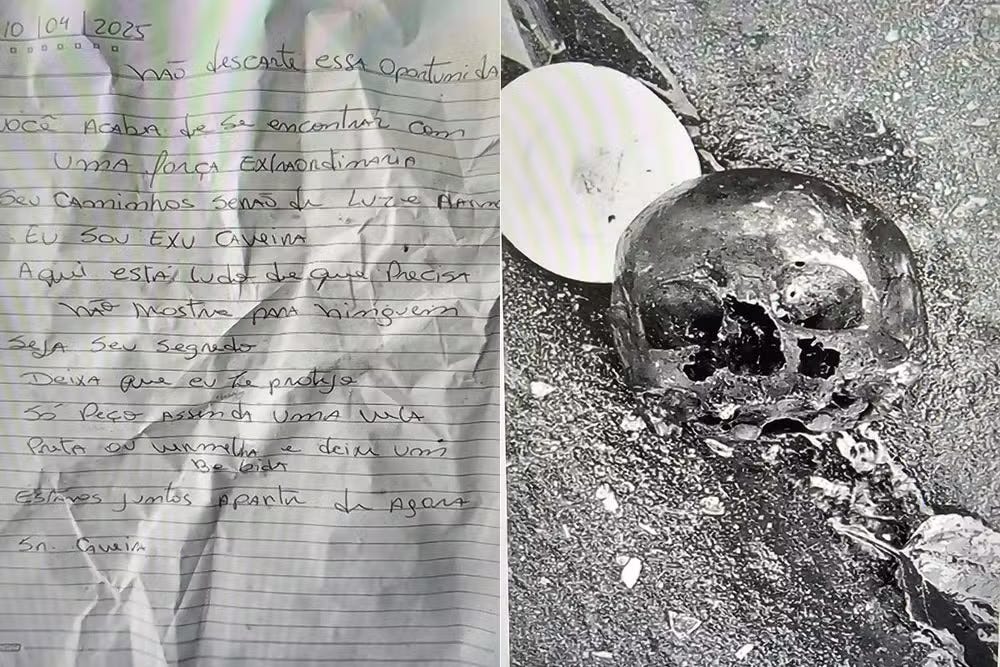 10 | 04 | 2025
NÃO descarte essa Oportunida
Você ACABA de se encontrar com
UMA força EXTRAORDINARIA
Seu Caminhos SERÃO de Luz e
EU SOU EXU CAVEIRA
Aqui está tudo de que Precisa
NÃO mostre para ninguem
SEJA Seu Segredo
DEIXA que eu te proteja
SÓ Peço ASSENDA UMA VELA
Preta ou vermelha e deixe um
Bebida
Estamos juntos APARTIR de AGORA
Sr. Caveira